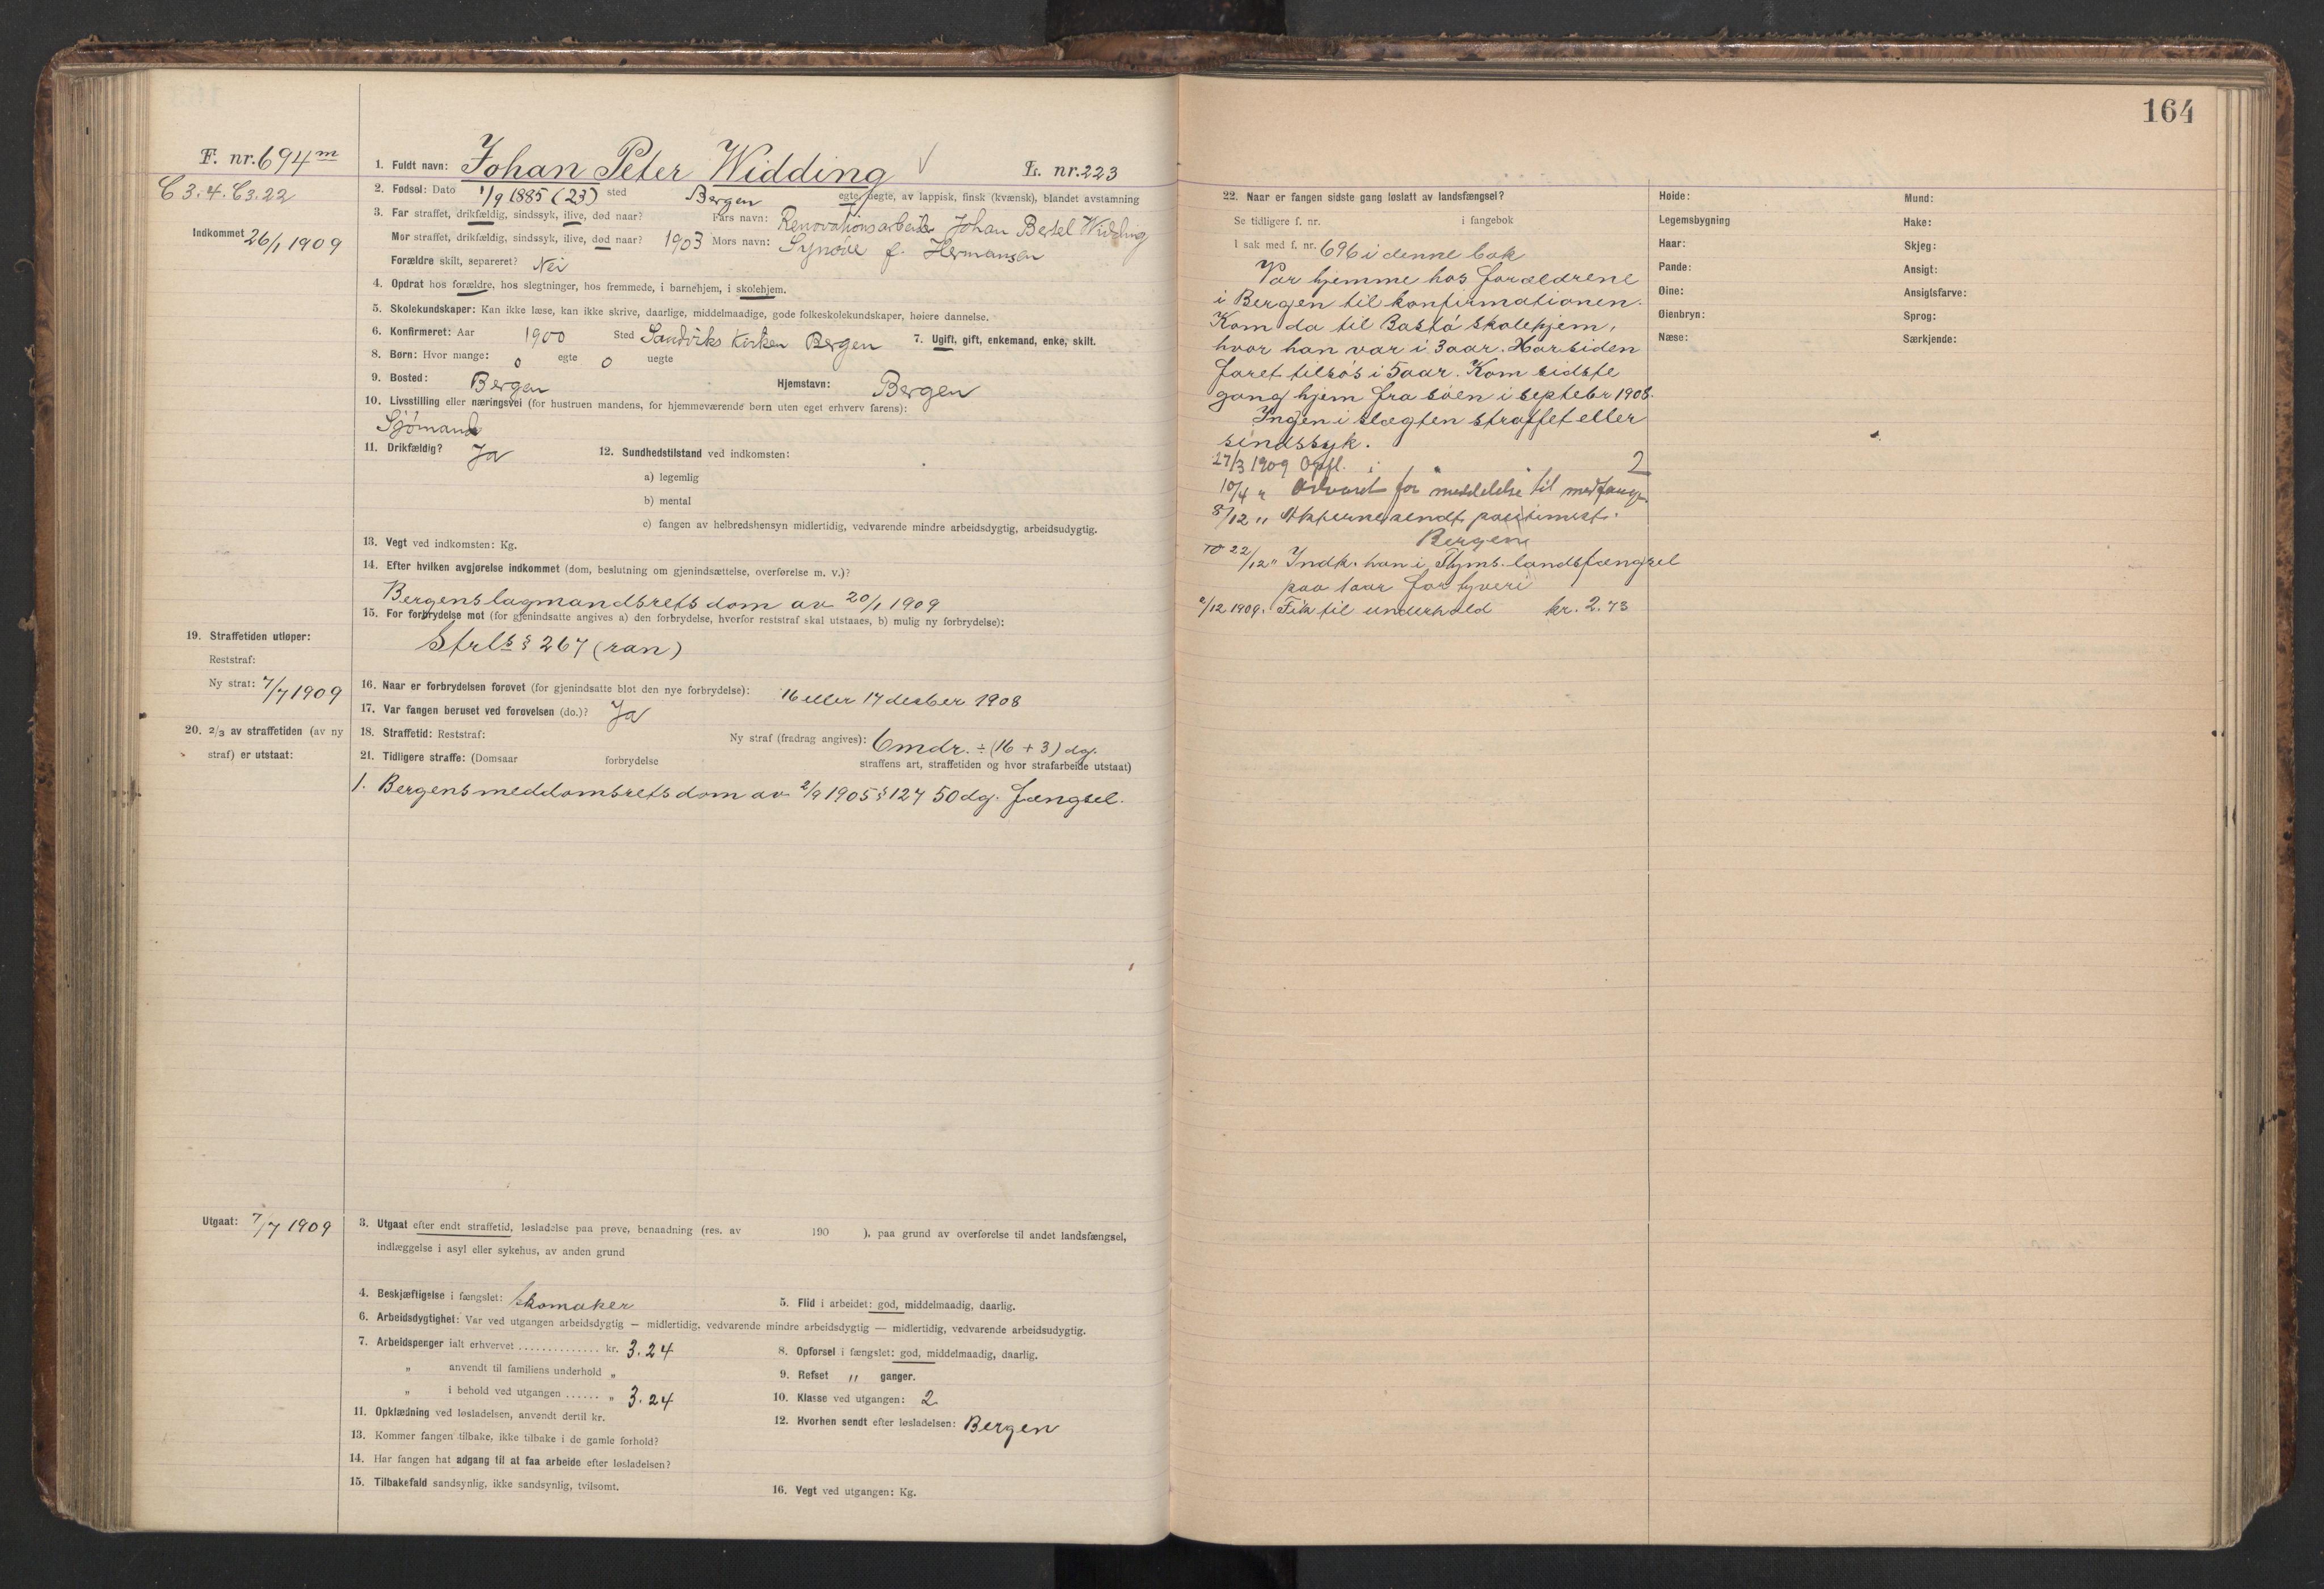 F. nr. 694 m
C 3. 4. C3. 22
Indkommet 26/1 1909
1. Fuldt navn: Johan Peter Widding L. nr. 223
2. Fødsel: Dato 1/9 1885 (23) sted Bergen egte, uegte, av lappisk, finsk (kvænsk), blandet avstamning
3. Far straffet, drikfældig, sindssyk, ilive, død naar? Fars navn: Renovationsarbeider Johan Bertel Widding
Mor straffet, drikfældig, sindssyk, ilive, død naar? 1903 Mors navn: Synøve f. Hermansen
Forældre skilt, separeret? Nei
4. Opdrat hos forældre, hos slegtninger, hos fremmede, i barnehjem, i skolehjem.
5. Skolekundskaper: Kan ikke læse, kan ikke skrive, daarlige, middelmaadige, gode folkeskolekundskaper, høiere dannelse.
6. Konfirmeret: Aar 1900 Sted Sandviks Kirken Bergen 7. Ugift, gift, enkemand, enke, skilt.
8. Børn: Hvor mange: 0 egte 0 uegte
9. Bosted: Bergen Hjemstavn: Bergen
10. Livsstilling eller næringsvei (for hustruen mandens, for hjemmeværende børn uten eget erhverv farens):
Sjømand
11. Drikfældig? Ja 12. Sundhedstilstand ved indkomsten:
a) legemlig
b) mental
c) fangen av helbredshensyn midlertidig, vedvarende mindre arbeidsdygtig, arbeidsudygtig.
13. Vegt ved indkomsten: Kg.
14. Efter hvilken avgjørelse indkommet (dom, beslutning om gjenindsættelse, overførelse m. v.)?
Bergens lagmandsrets dom av 20/1 1909
15. For forbrydelse mot (for gjenindsatte angives a) den forbrydelse, hvorfor reststraf skal utstaaes, b) mulig ny forbrydelse):
Strl's § 267 (ran)
19. Straffetiden utløper:
Reststraf:
Ny straf: 7/7 1909
16. Naar er forbrydelsen forøvet (for gjenindsatte blot den nye forbrydelse): 16 eller 17 desber 1908
17. Var fangen beruset ved forøvelsen (do.)? Ja
20. 2/3 av straffetiden (av ny straf) er utstaat:
18. Straffetid: Reststraf: Ny straf (fradrag angives): 6 mdr. ÷ (16 + 3) dg.
21. Tidligere straffe: (Domsaar forbrydelse straffens art, straffetiden og hvor strafarbeide utstaat)
1. Bergens meddomsrets dom av 2/9 1905 § 127 50 dg. fængsel.
Utgaat: 7/7 1909
3. Utgaat efter endt straffetid, løsladelse paa prøve, benaadning (res. av 190 ), paa grund av overførelse til andet landsfængsel,
indlæggelse i asyl eller sykehus, av anden grund
4. Beskjæftigelse i fængslet: skomaker 5. Flid i arbeidet: god, middelmaadig, daarlig.
6. Arbeidsdygtighet: Var ved utgangen arbeidsdygtig — midlertidig, vedvarende mindre arbeidsdygtig — midlertidig, vedvarende arbeidsudygtig.
7. Arbeidspenger ialt erhvervet .............. kr. 3.24 8. Opførsel i fængslet: god, middelmaadig, daarlig.
" anvendt til familiens underhold " 9. Refset " ganger.
" i behold ved utgangen ...... " 3.24 10. Klasse ved utgangen: 2
11. Opklædning ved løsladelsen, anvendt dertil kr. 12. Hvorhen sendt efter løsladelsen: Bergen
13. Kommer fangen tilbake, ikke tilbake i de gamle forhold?
14. Har fangen hat adgang til at faa arbeide efter løsladelsen?
15. Tilbakefald sandsynlig, ikke sandsynlig, tvilsomt. 16. Vegt ved utgangen: Kg.
164
22. Naar er fangen sidste gang løslatt av landsfængsel?
Se tidligere f. nr. i fangebok
I sak med f. nr. 696 i denne bok
Var hjemme hos forældrene
i Bergen til konfirmationen.
Kom da til Bastø skolehjem,
hvor han var i 3 aar. Har siden
faret tilsøs i 5 aar. Kom sidste
gang hjem fra søen i septebr 1908.
Ingen i slægten straffet eller
sindssyk.
27/3 1909 Opfl. i " " 2
10/4 " Advaret for meddelelse til medfange
8/12 " Akterne sendt politimest.
Bergen
22/12 " Indk. han i Thjms. landsfængsel
paa 1 aar for tyveri
/12 1909. Fik til underhold kr. 2.73
Høide: Mund:
Legemsbygning Hake:
Haar: Skjeg:
Pande: Ansigt:
Øine: Ansigtsfarve:
Øienbryn: Sprog:
Næse: Særkjende: